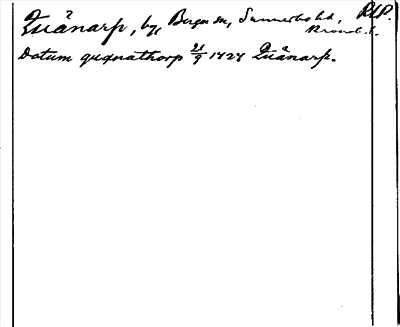 Quånarp, by, Berga sn, Sunnerbo hd, RAP.
Kronob. l.
Datum quanathorp 21/9 1424 Quånarp.